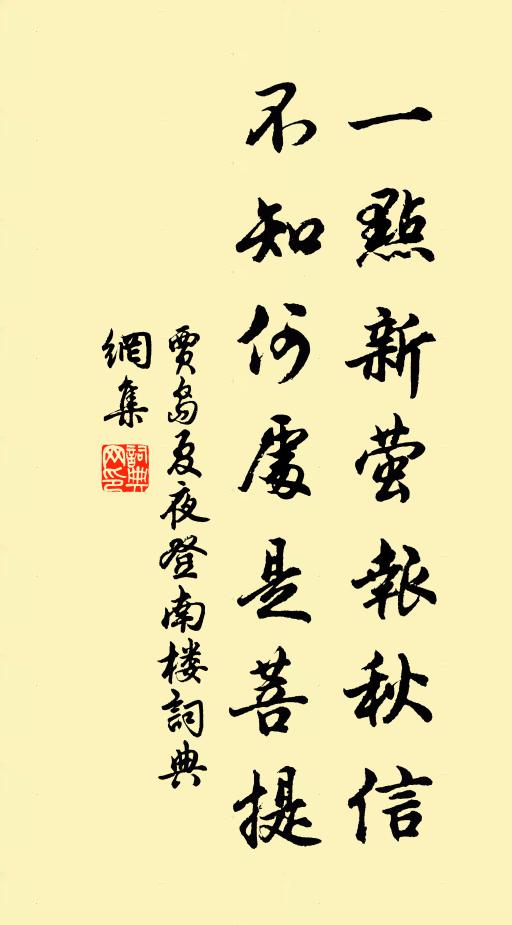 一點新螢報秋信
不知何處是菩提
賈島夏夜登南楼詞典
網集
詞典
网印